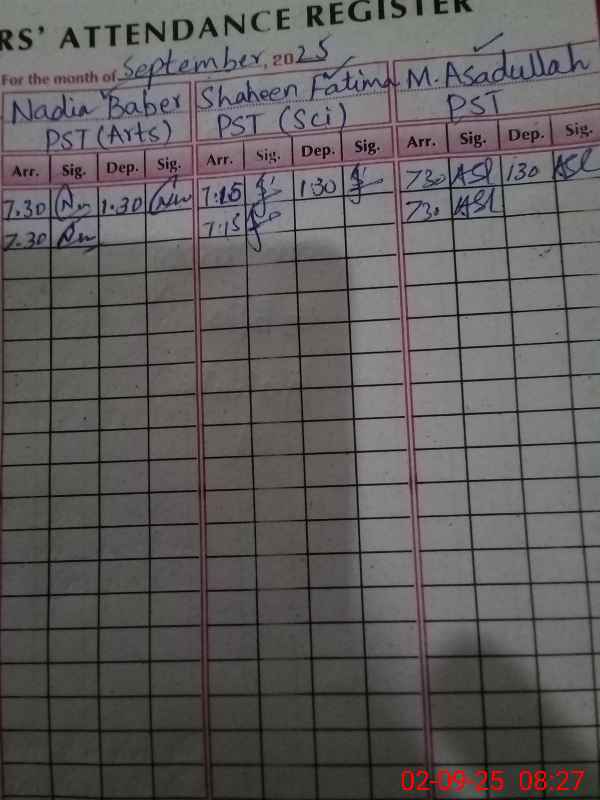 RS' ATTENDANCE REGISTER
For the month of September, 2025
Nadia Baber Shaheen Fatima M. Asadullah
PST (Arts) PST (Sci) PST
Arr. Sig. Dep. Sig. Arr. Sig. Dep. Sig. Arr. Sig. Dep. Sig.
7.30 1.30 7:15 1:30 730 ASL 130 ASL
7.30 7:15 730 ASL
02-09-25 08:27